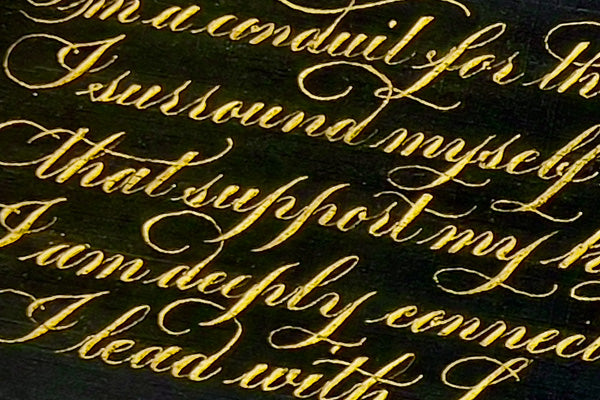 I'm a conduit for
I surround myself
that support my
I am deeply
I lead with